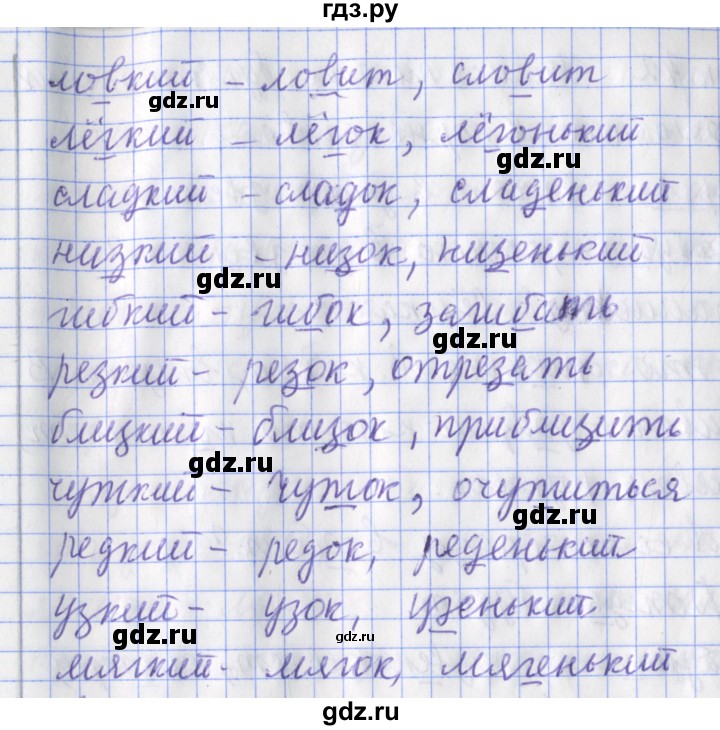 гдз.ру
ловкий – ловит, словит
gdz.ru
лёгкий – лёгок, лёгонький
gdz.ru
сладкий – сладок, сладенький
низкий – низок, низенький
gdz.ru
гибкий – гибок, загибать
gdz.ru
резкий – резок, отрезать
близкий – близок, приблизить
gdz.ru
чуткий – чуток, очутиться
gdz.ru
редкий – редок, реденький
узкий – узок, узенький
gdz.ru
gdz.ru
мягкий – мягок, мягенький
gdz.ru